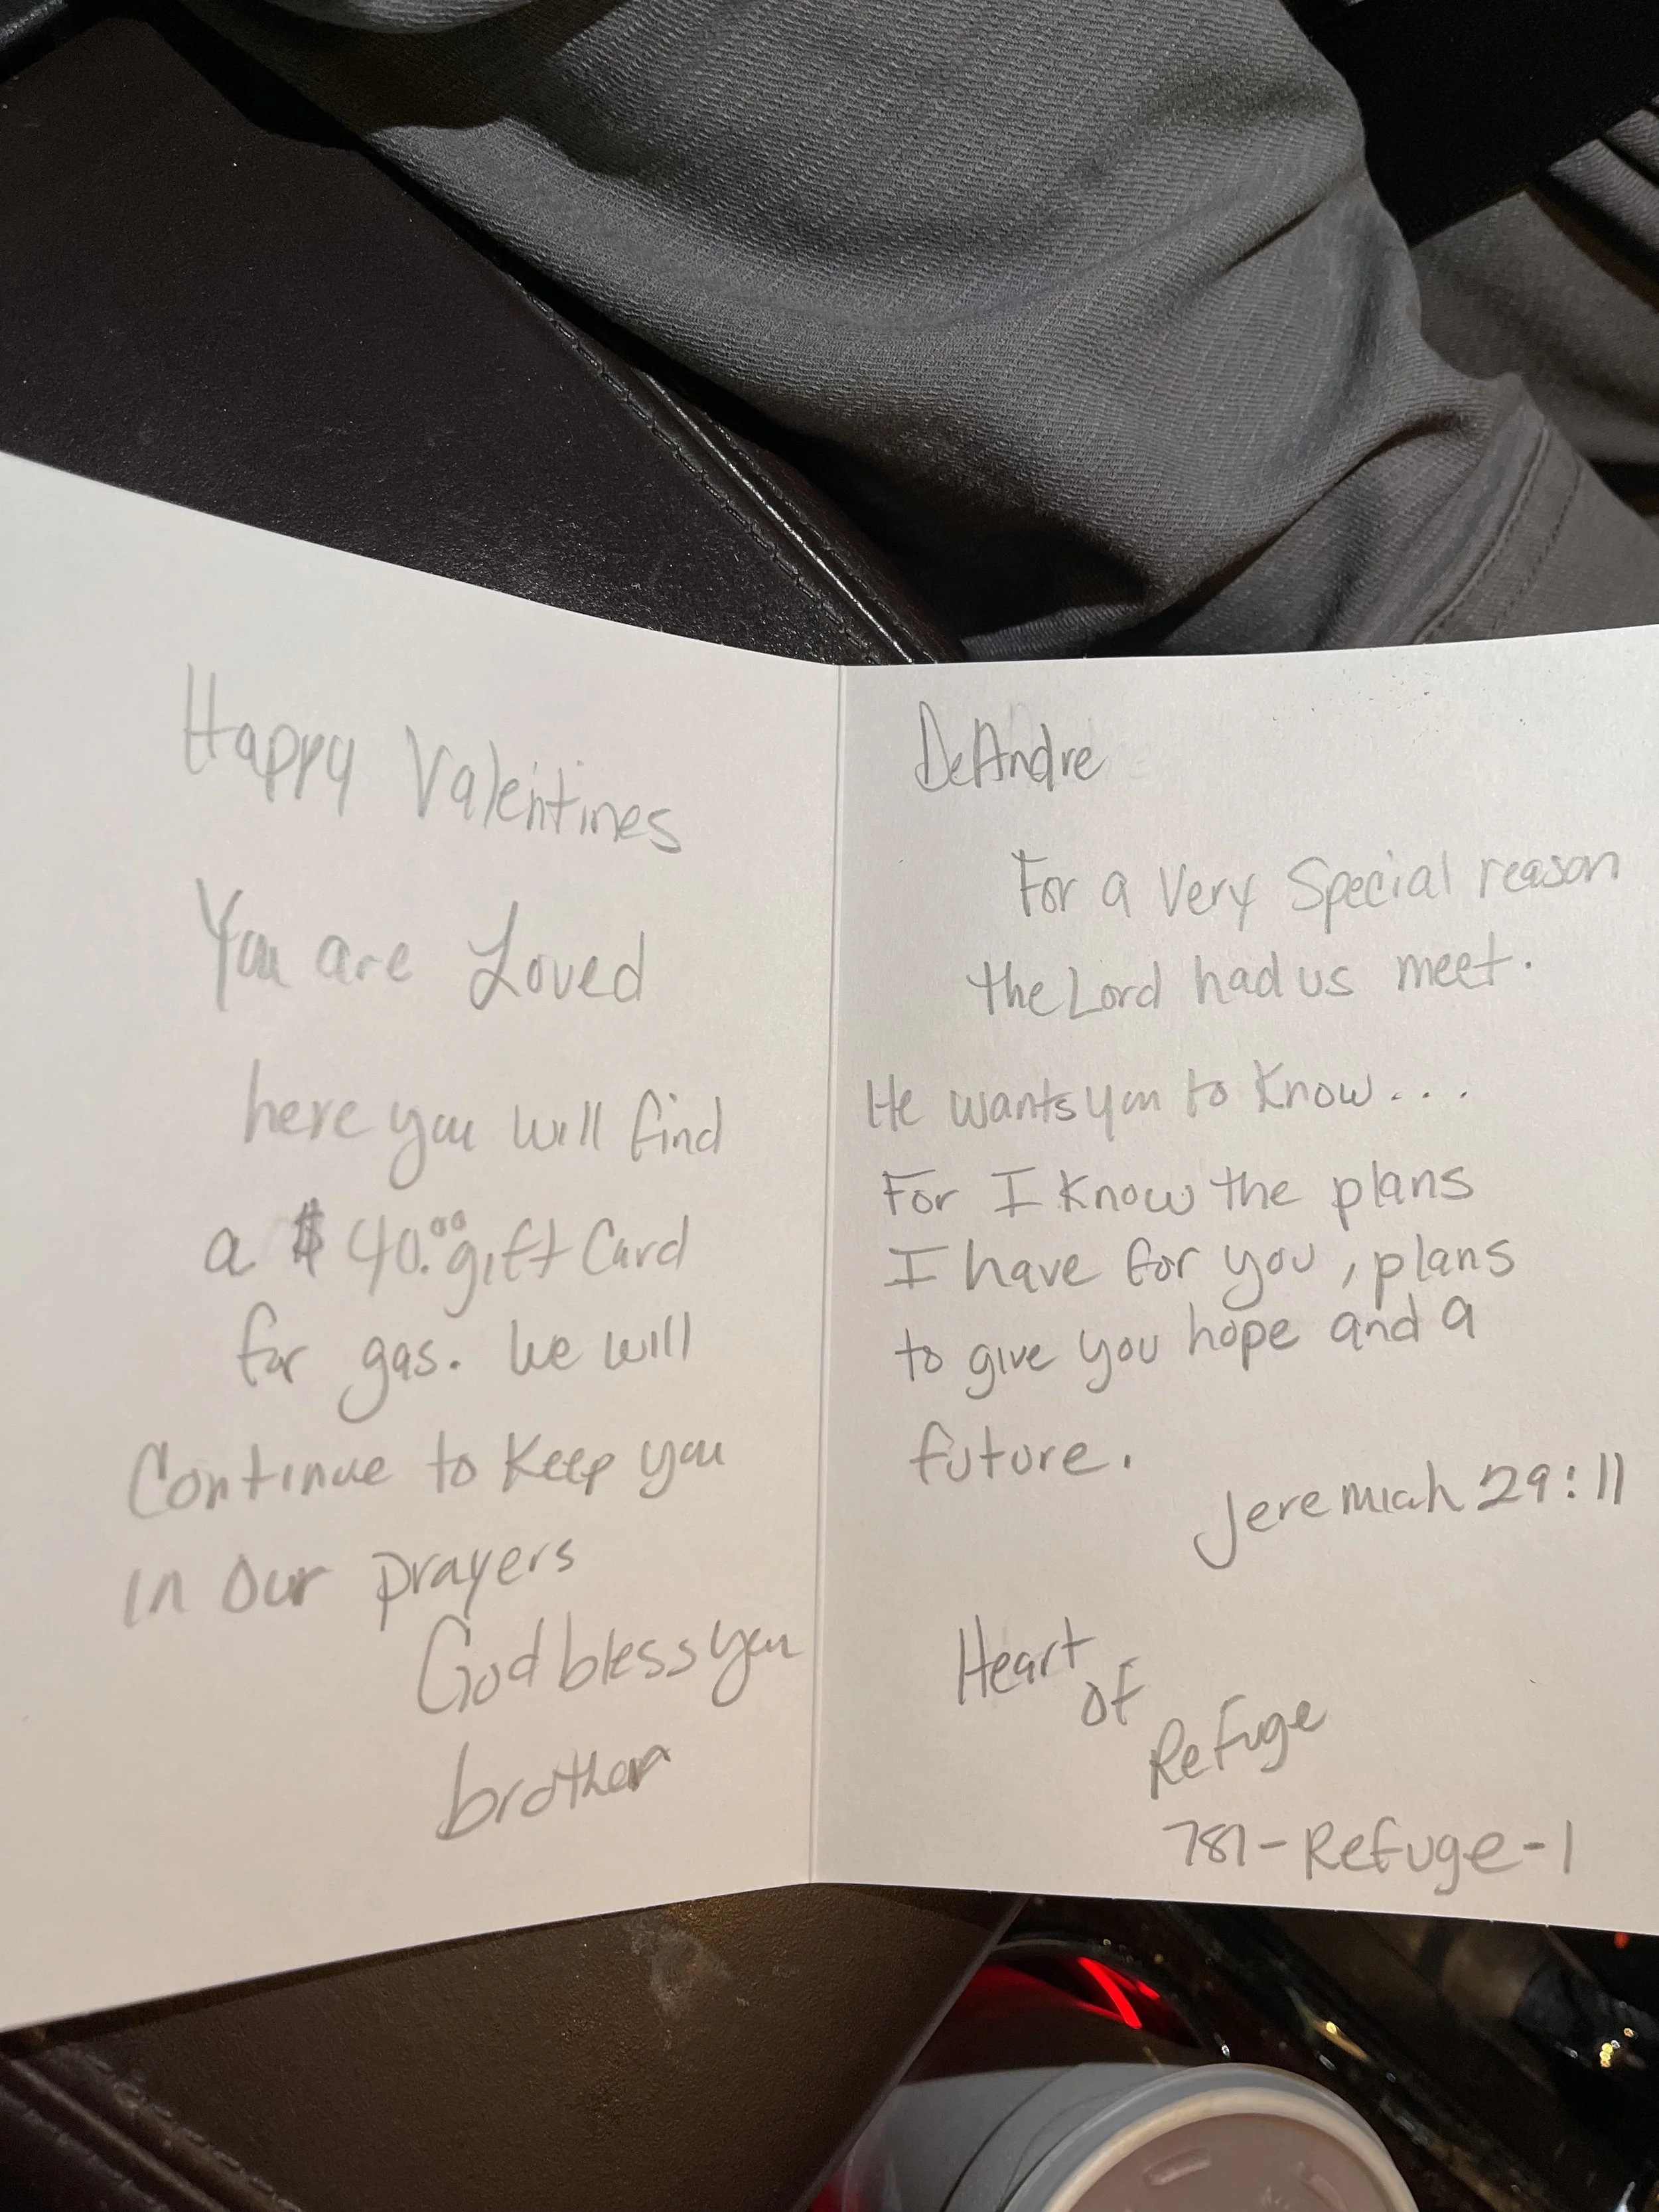 Happy Valentines
You are Loved
here you will find
a $40.00 gift Card
for gas. We will
Continue to Keep you
in our prayers
God bless you
brother
DeAndre
For a Very Special reason
the Lord had us meet.
He wants you to know...
For I know the plans
I have for you, plans
to give you hope and a
future.
Jeremiah 29:11
Heart
of
Refuge
781-Refuge-1